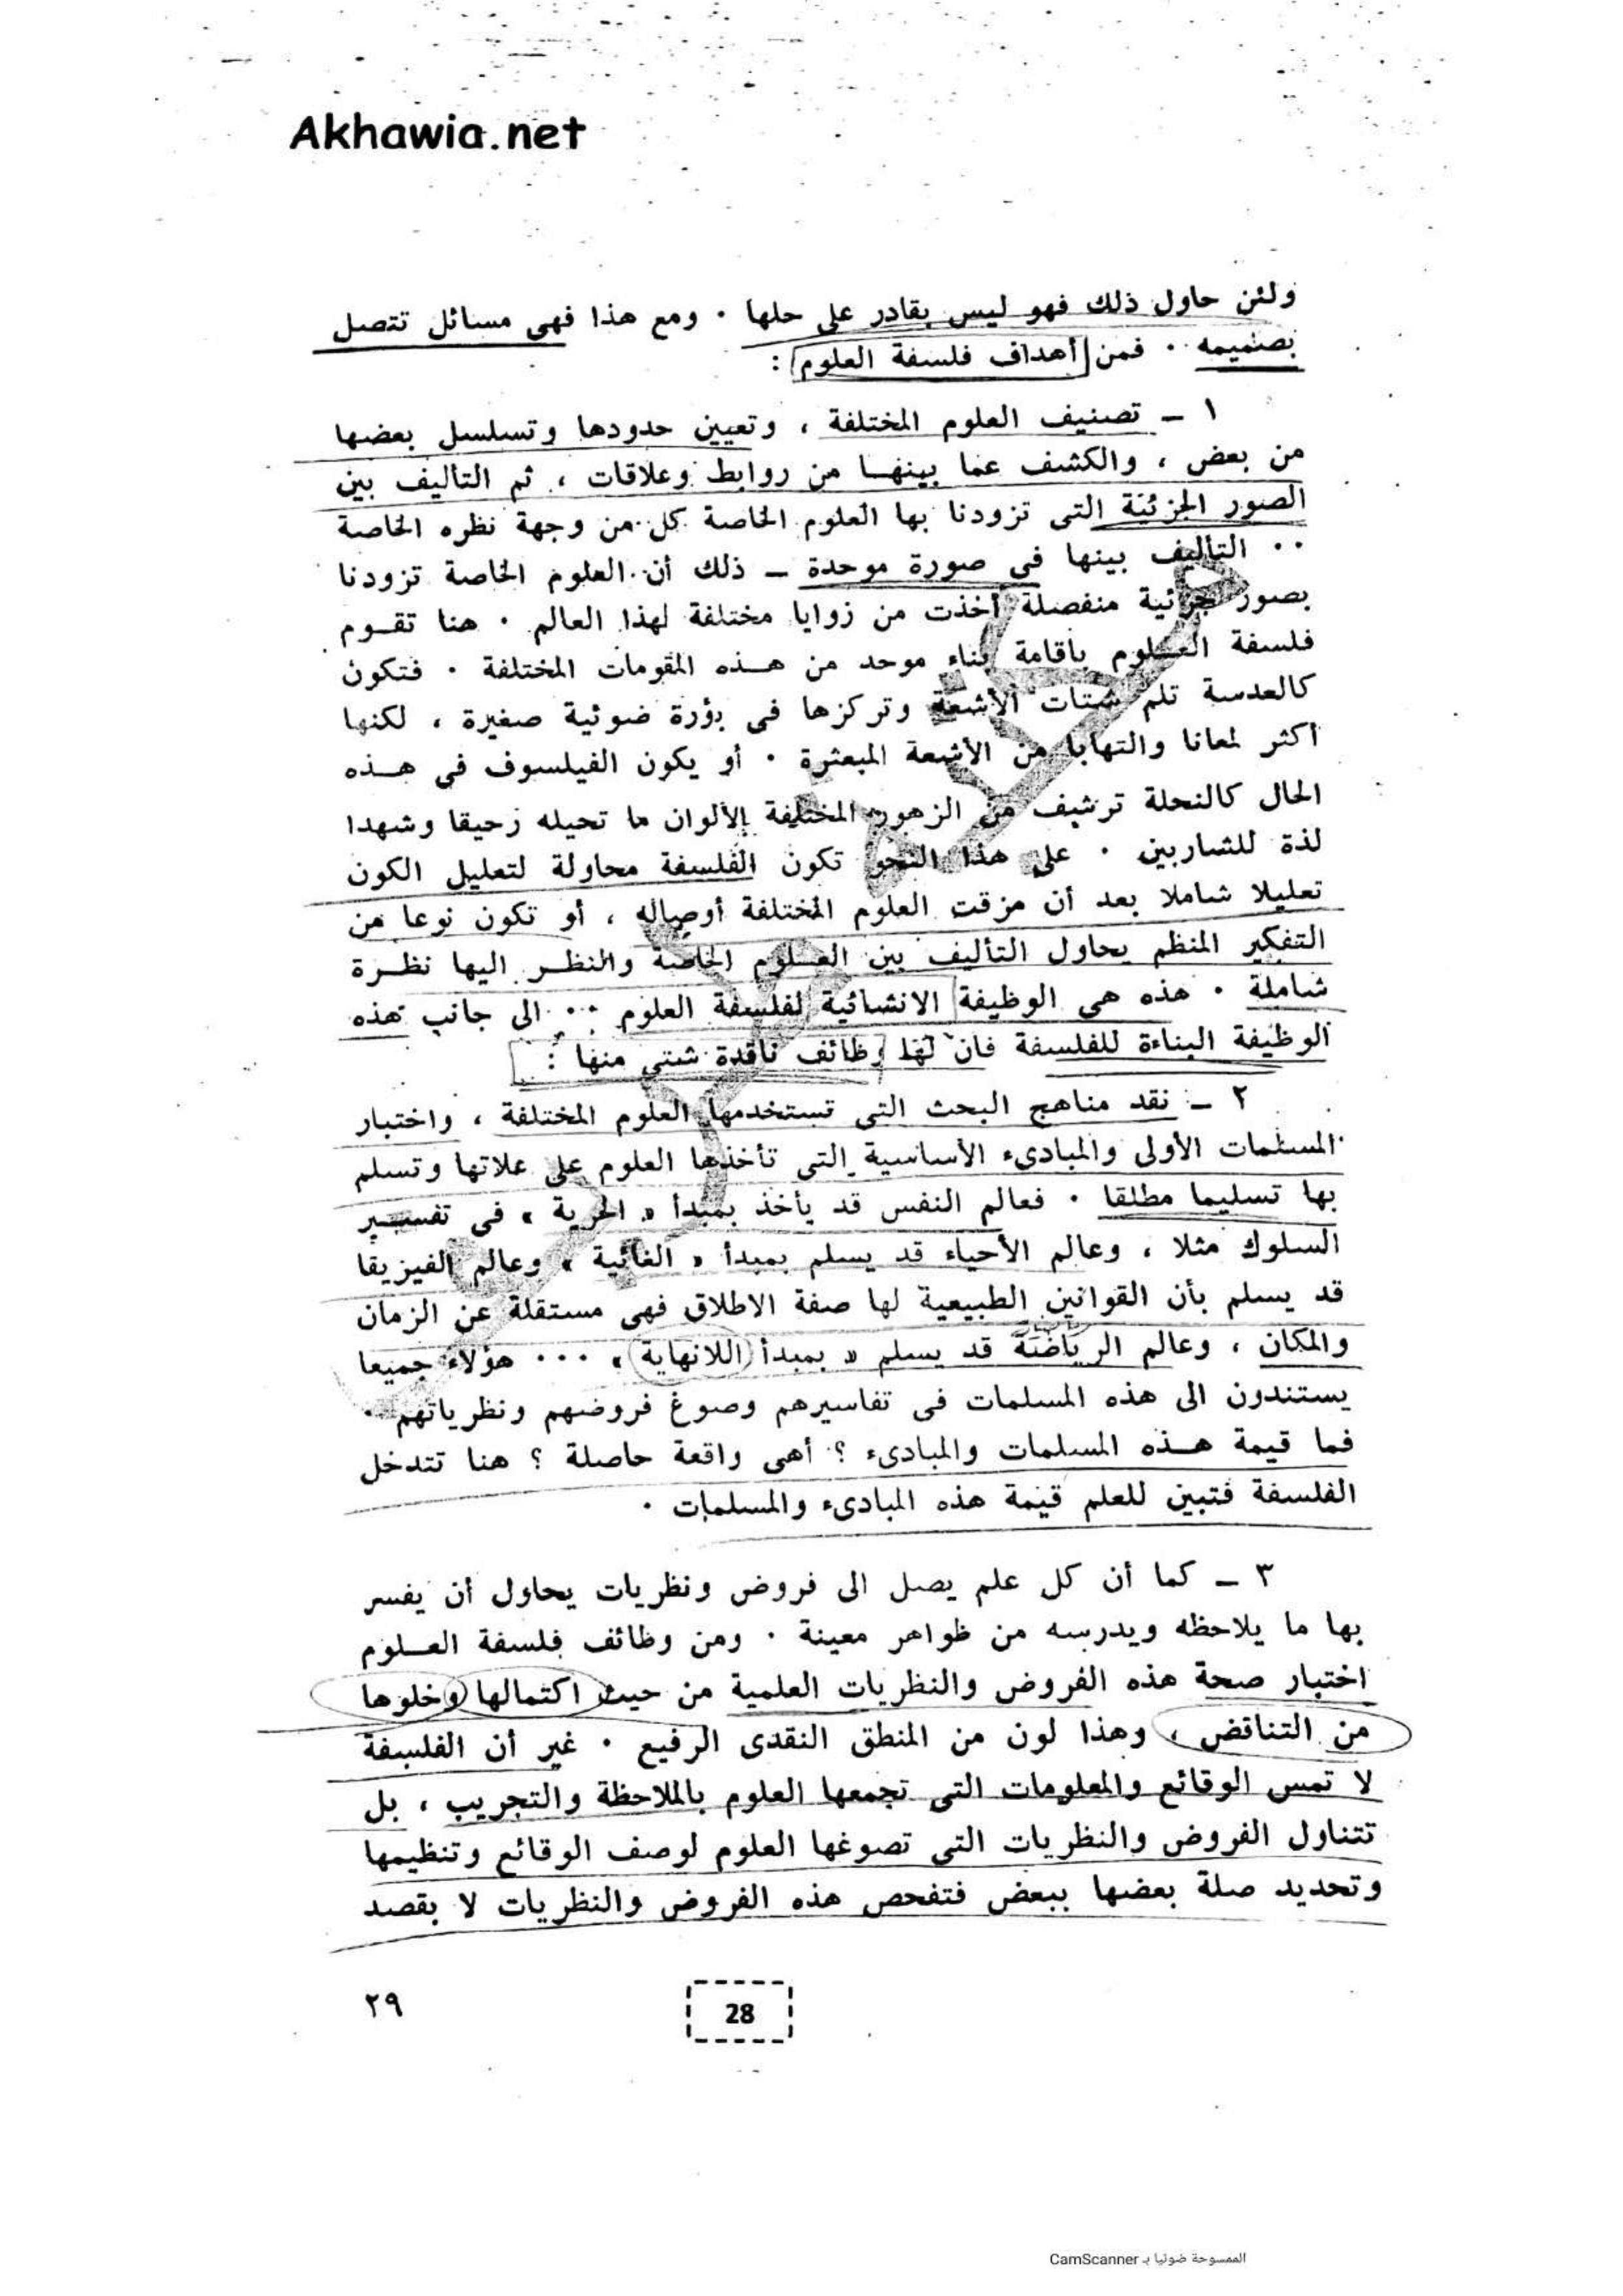 Akhawia.net
ولئن حاول ذلك فهو ليس بقادر على حلها . ومع هذا فهى مسائل تتصل
بصميمه . فمن أهداف فلسفة العلوم :
١ ــ تصنيف العلوم المختلفة ، وتعيين حدودها وتسلسل بعضها
من بعض ، والكشف عما بينهــا من روابط وعلاقات ، ثم التأليف بين
الصور الجزئية التى تزودنا بها العلوم الخاصة كل من وجهة نظره الخاصة
.. التأليف بينها فى صورة موحدة ــ ذلك أن العلوم الخاصة تزودنا
بصور جزئية منفصلة أخذت من زوايا مختلفة لهذا العالم . هنا تقــوم
فلسفة العــلوم باقامة بناء موحد من هــذه المقومات المختلفة . فتكون
كالعدسة تلم شتات الأشعة وتركزها فى بؤرة ضوئية صغيرة ، لكنها
أكثر لمعانا والتهابا من الأشعة المبعثرة . أو يكون الفيلسوف فى هــذه
الحال كالنحلة ترشيف من الزهور المختلفة الألوان ما تحيله رحيقا وشهدا
لذة للشاربين . على هذا النحو تكون الفلسفة محاولة لتعليل الكون
تعليلا شاملا بعد أن مزقت العلوم المختلفة أوصاله ، أو تكون نوعا من
التفكير المنظم يحاول التأليف بين العــلوم الخاصة والنظــر اليها نظــرة
شاملة . هذه هى الوظيفة الانشائية لفلسفة العلوم .. الى جانب هذه
الوظيفة البناءة للفلسفة فان لها وظائف ناقدة شتى منها :
٢ ــ نقد مناهج البحث التى تستخدمها العلوم المختلفة ، واختبار
المسلمات الأولى والمبادىء الأساسية التى تأخذها العلوم على علاتها وتسلم
بها تسليما مطلقا . فعالم النفس قد يأخذ بمبدأ « الحرية » فى تفسير
السلوك مثلا ، وعالم الأحياء قد يسلم بمبدأ « الغائية » وعالم الفيزيقا
قد يسلم بأن القوانين الطبيعية لها صفة الاطلاق فهى مستقلة عن الزمان
والمكان ، وعالم الرياضة قد يسلم « بمبدأ اللانهاية » ... هؤلاء جميعا
يستندون الى هذه المسلمات فى تفاسيرهم وصوغ فروضهم ونظرياتهم .
فما قيمة هــذه المسلمات والمبادىء ؟ أهى واقعة حاصلة ؟ هنا تتدخل
الفلسفة فتبين للعلم قيمة هذه المبادىء والمسلمات .
٣ ــ كما أن كل علم يصل الى فروض ونظريات يحاول أن يفسر
بها ما يلاحظه ويدرسه من ظواهر معينة . ومن وظائف فلسفة العــلوم
اختبار صحة هذه الفروض والنظريات العلمية من حيث اكتمالها وخلوها
من التناقض ، وهذا لون من المنطق النقدى الرفيع . غير أن الفلسفة
لا تمس الوقائع والمعلومات التى تجمعها العلوم بالملاحظة والتجريب ، بل
تتناول الفروض والنظريات التى تصوغها العلوم لوصف الوقائع وتنظيمها
وتحديد صلة بعضها ببعض فتفحص هذه الفروض والنظريات لا بقصد
٢٩
28
الممسوحة ضوئيا بـ CamScanner